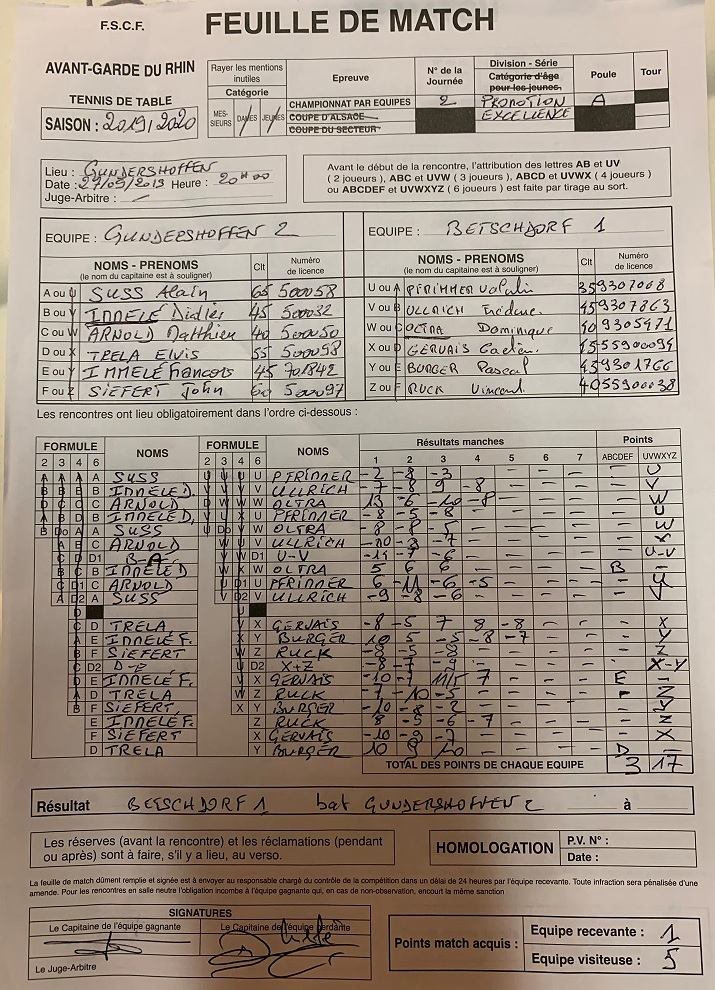 F.S.C.F.
FEUILLE DE MATCH
AVANT-GARDE DU RHIN
TENNIS DE TABLE
SAISON : 2019/2020
Rayer les mentions inutiles
Catégorie
MES-SIEURS DAMES JEUNES
Epreuve
CHAMPIONNAT PAR EQUIPES
COUPE D'ALSACE
COUPE DU SECTEUR
N° de la Journée
2
Division - Série
Catégorie d'âge pour les jeunes
PROMOTION
EXCELLENCE
Poule
A
Tour
Lieu : GUNDERSHOFFEN
Date : 27/09/2019 Heure : 20H00
Juge-Arbitre : —
Avant le début de la rencontre, l'attribution des lettres AB et UV
( 2 joueurs ), ABC et UVW ( 3 joueurs ), ABCD et UVWX ( 4 joueurs )
ou ABCDEF et UVWXYZ ( 6 joueurs ) est faite par tirage au sort.
EQUIPE : GUNDERSHOFFEN 2
EQUIPE : BETSCHDORF 1
NOMS - PRENOMS Clt Numéro de licence
(le nom du capitaine est à souligner)
NOMS - PRENOMS Clt Numéro de licence
(le nom du capitaine est à souligner)
A ou U SUSS Alain 65 500058
U ou A PFRIMMER Valentin 35 9307008
B ou V IMMELÉ Didier 45 500032
V ou B ULLRICH Frédéric 45 9307863
C ou W ARNOLD Matthieu 40 500050
W ou C OLTRA Dominique 40 9305971
D ou X TRELA Elvis 55 500098
X ou D GERVAIS Gaëtan
E ou Y IMMELÉ Francois 45 701842
Y ou E BURGER Pascal 45 9301766
F ou Z SIEFERT John 60 500097
Z ou F RUCK Vincent 40 55900038
Les rencontres ont lieu obligatoirement dans l'ordre ci-dessous :
FORMULE NOMS FORMULE NOMS Résultats manches Points
2 3 4 6 2 3 4 6 1 2 3 4 5 6 7 ABCDEF UVWXYZ
A A A A SUSS U U U U PFRIMMER -2 -8 -3 — — — — — U
B B B B IMMELE D. V V V V ULLRICH -7 -8 9 -8 — — — — V
C C C ARNOLD W W W OLTRA 13 -6 -10 -8 — — — — W
A B D B IMMELE D, U PFRIMMER -8 -5 -8 — — — — — U
B Do A A SUSS U Do W OLTRA -8 -8 -5 — — — — — W
A E C ARNOLD V ULLRICH -10 -3 -7 — — — —
D1 B-A W D1 U-V -6 — — — — — U-V
B C B IMMELE D W OLTRA 5 6 6 — — — — B —
C D1 C ARNOLD U D1 U PFRIMMER 6 -11 -6 -5 — — — — U
A D2 A SUSS V D2 V ULLRICH -9 -8 -6 — — — — — V
D TRELA X GERVAIS -8 -5 7 8 -8 — — — X
E IMMELE F. Y BURGER 10 5 -5 -8 -7 — — — Y
F SIEFERT Z RUCK -8 -5 -8 — — — — — Z
D2 D2 X+Z -8 -7 -9 — — — — — X-Y
E IMMELE F. X GERVAIS -10 11/5 7 — — — E —
D TRELA Z RUCK -7 -10 -5 — — — — — Z
F SIEFERT Y BURGER -10 -8 -2 — — — — — Y
E IMMELE F. Z RUCK 8 -5 -6 -7 — — — — Z
F SIEFERT X GERVAIS -10 -9 -7 — — — — — X
D TRELA Y BURGER 10 9 10 — — — — D —
TOTAL DES POINTS DE CHAQUE EQUIPE 3 17
Résultat BETSCHDORF 1 bat GUNDERSHOFFEN 2 à
Les réserves (avant la rencontre) et les réclamations (pendant
ou après) sont à faire, s'il y a lieu, au verso.
HOMOLOGATION
P.V. N° :
Date :
La feuille de match dûment remplie et signée est à envoyer au responsable chargé du contrôle de la compétition dans un délai de 24 heures par l'équipe recevante. Toute infraction sera pénalisée d'une
amende. Pour les rencontres en salle neutre l'obligation incombe à l'équipe gagnante qui, en cas de non-observation, encourt la même sanction
SIGNATURES
Le Capitaine de l'équipe gagnante
Le Capitaine de l'équipe perdante
Le Juge-Arbitre
Points match acquis :
Equipe recevante : 1
Equipe visiteuse : 5